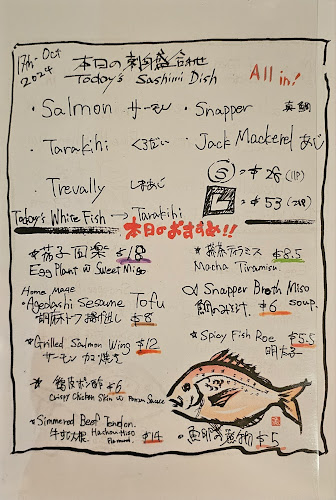 17th. Oct
2024
本日の刺身盛合わせ
Today's Sashimi Dish
All in!
・Salmon サーモン
・Snapper 真鯛
・Tarakihi くろだい
・Jack Mackerel あじ
・Trevally しまあじ
Ⓢ = $28 (1P)
L = $53
Today's White Fish → Tarakihi
本日のおすすめ!!
★茄子田楽 $18
Egg Plant w Sweet Miso
★抹茶ティラミス $8.5
Macha Tiramisu
Home Made
・Agedashi Sesame Tofu
胡麻トーフ揚げ出し $8
Snapper Broth Miso Soup.
鯛のみそ汁 $6
★Grilled Salmon Wing $12
サーモン カマ焼き
★Spicy Fish Roe $5.5
明太子
★鶏皮ポン酢 $6
Crispy Chicken Skin w Ponzu Sauce
★Simmered Beef Tendon.
牛すじ大根 Hatcho Miso $14
$5